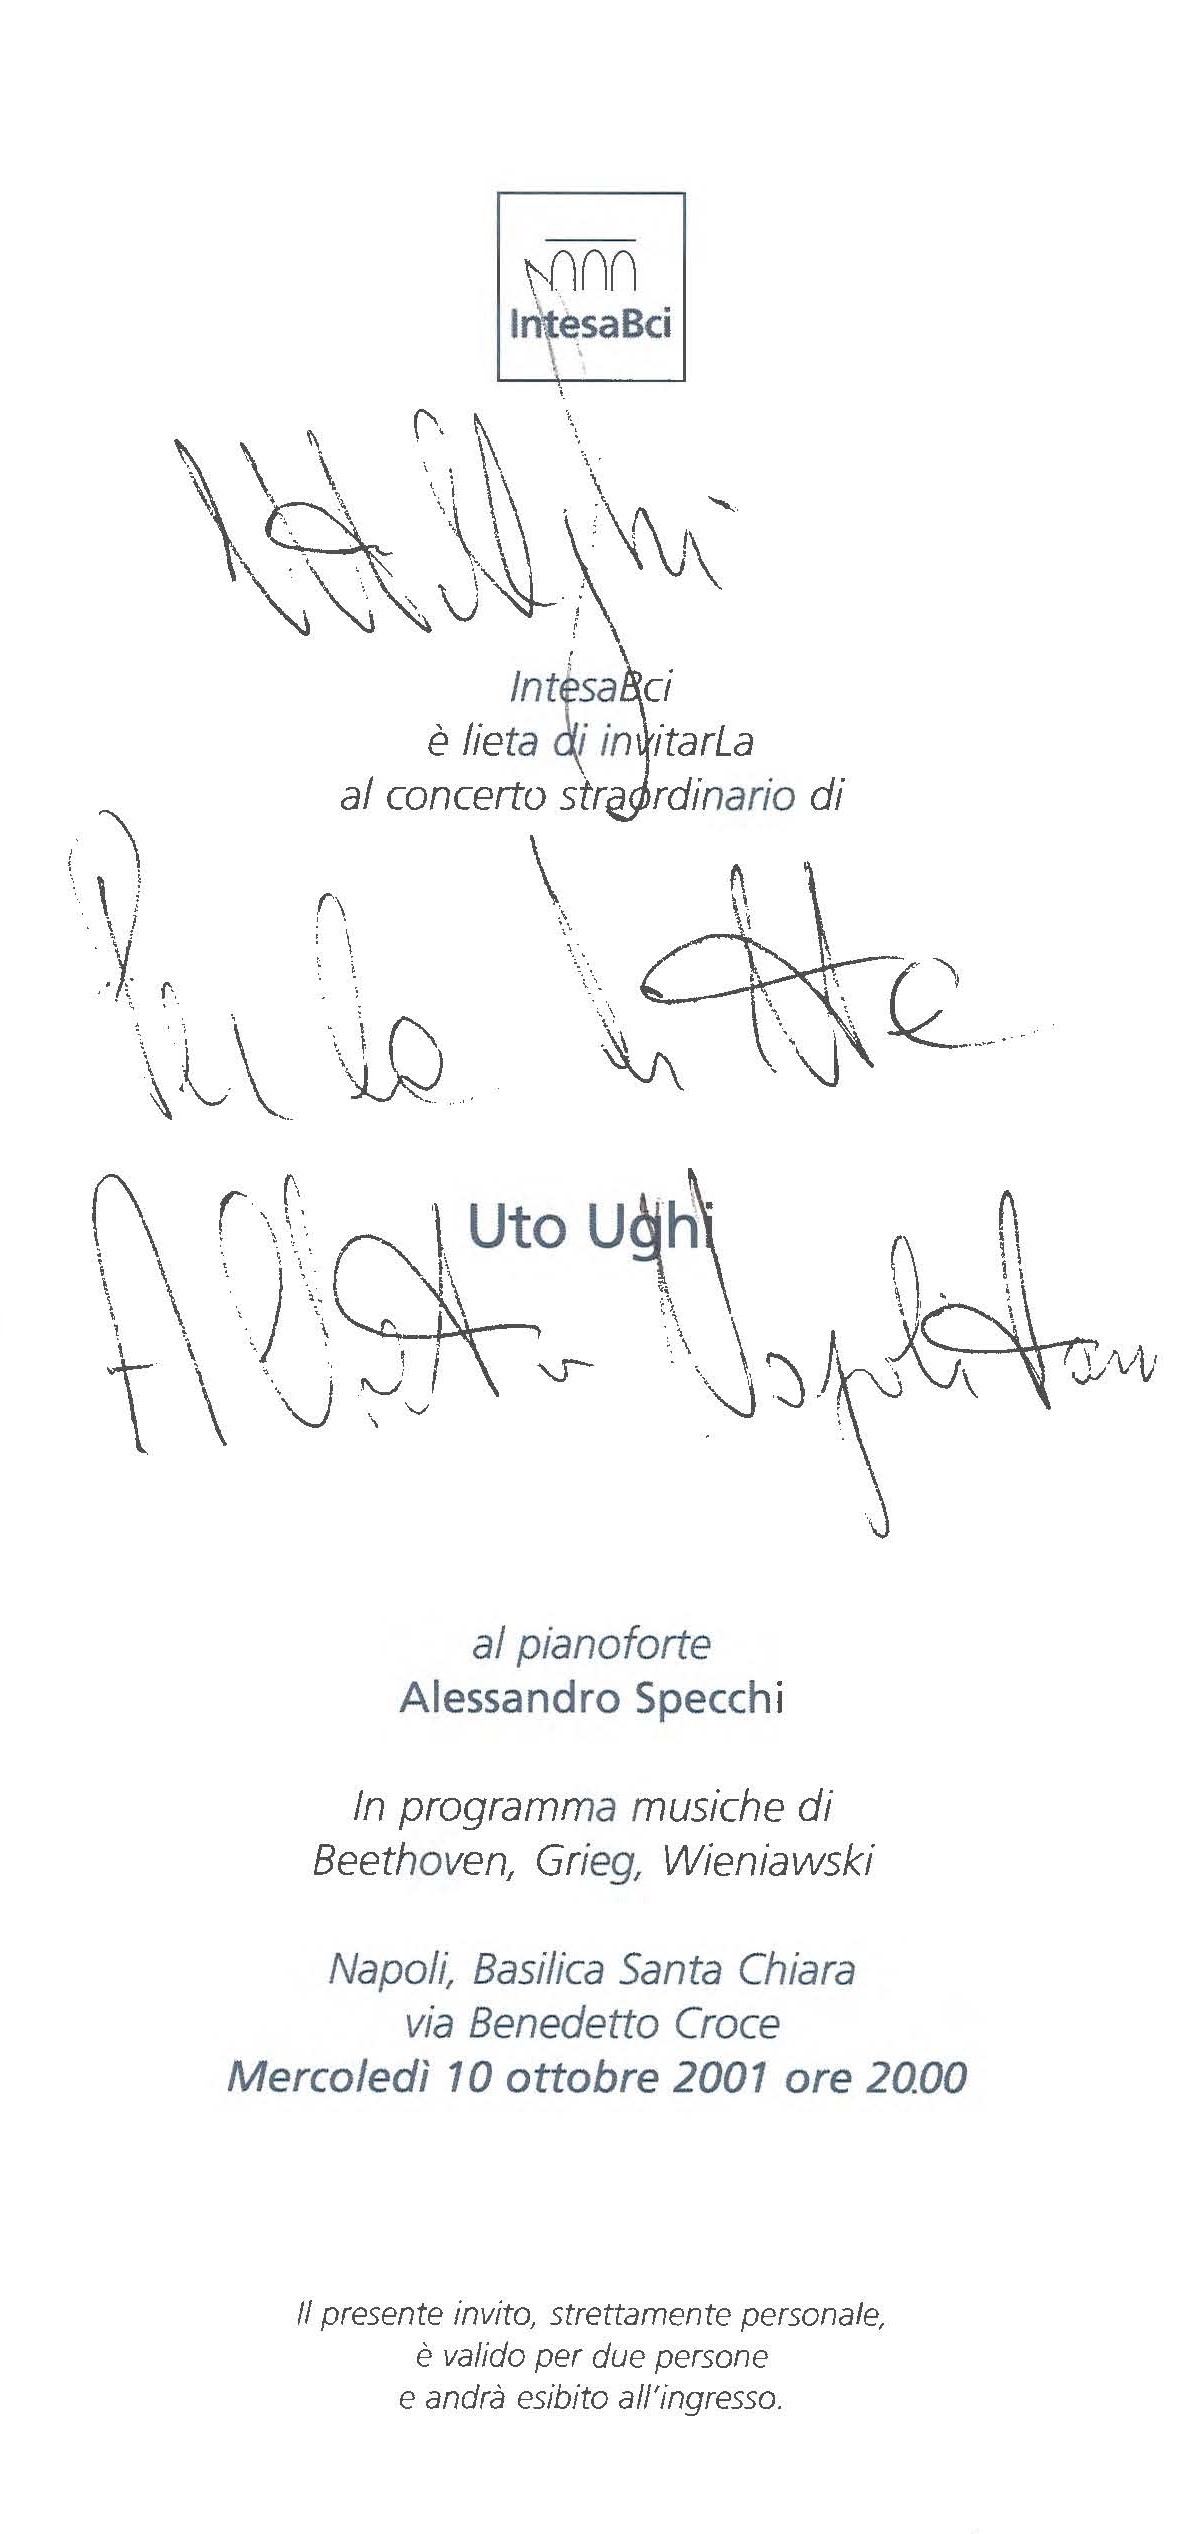 IntesaBci
Uto Ughi
IntesaBci
è lieta di invitarLa
al concerto straordinario di
Per la
Uto Ughi
al pianoforte
Alessandro Specchi
In programma musiche di
Beethoven, Grieg, Wieniawski
Napoli, Basilica Santa Chiara
via Benedetto Croce
Mercoledì 10 ottobre 2001 ore 20.00
Il presente invito, strettamente personale,
è valido per due persone
e andrà esibito all'ingresso.